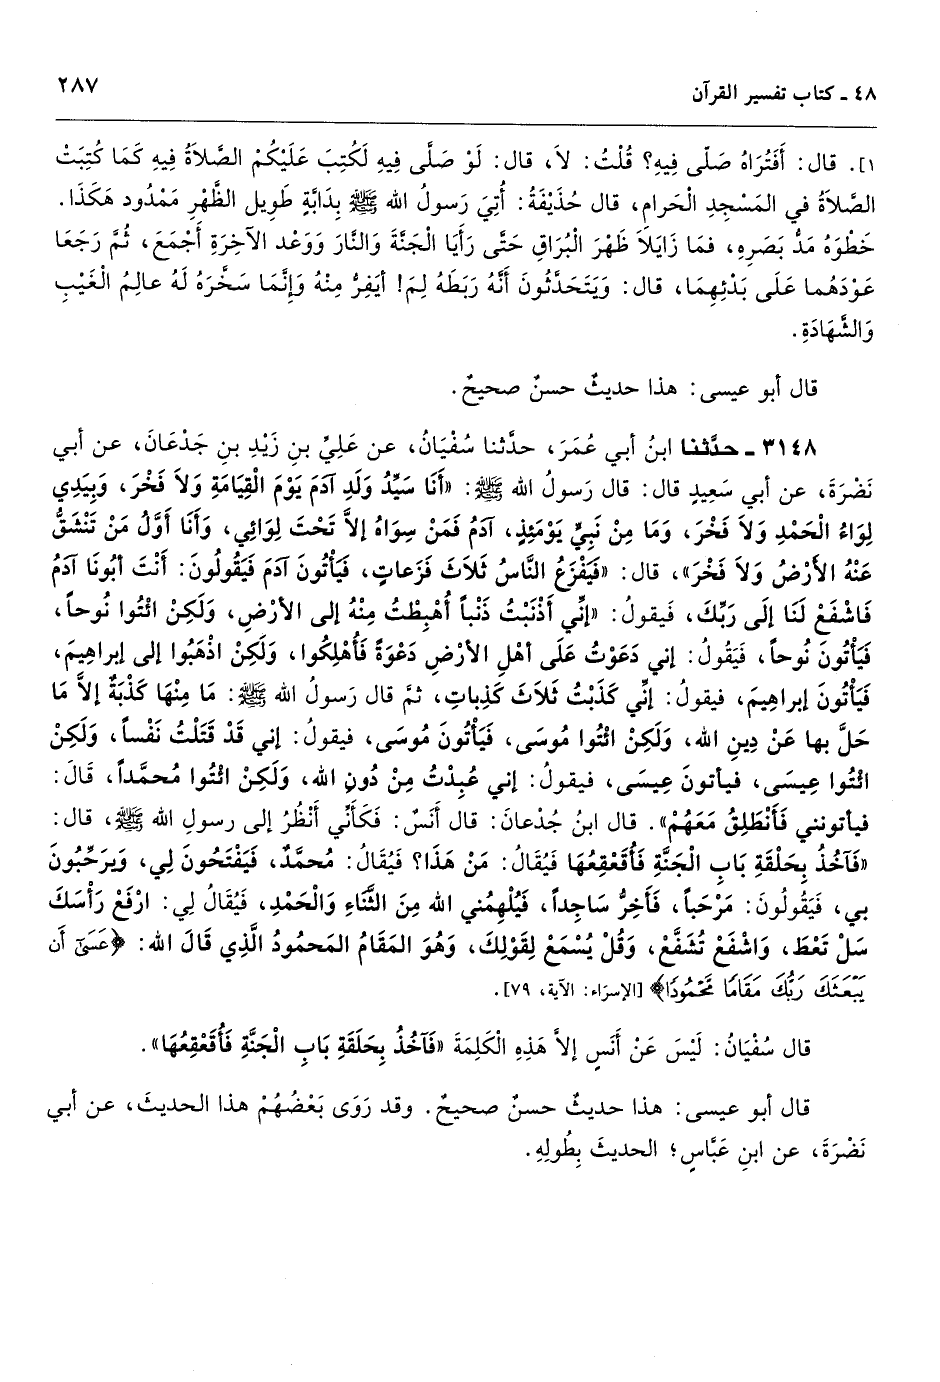 ٤٨ ـ كتاب تفسير القرآن
٢٨٧
١]. قال: أَفَتُرَاهُ صَلَّى فِيهِ؟ قُلْتُ: لاَ، قال: لَوْ صَلَّى فِيهِ لَكُتِبَ عَلَيْكُمْ الصَّلاَةُ فِيهِ كَمَا كُتِبَتْ
الصَّلاَةُ في المَسْجِدِ الْحَرامِ، قال حُذَيْفَةُ: أُتِيَ رَسولُ الله ﷺ بِدَابَّةٍ طَوِيلِ الظَّهْرِ مَمْدُود هَكَذَا.
خَطْوَهُ مَدُّ بَصَرِهِ، فمَا زَايَلاَ ظَهْرَ الْبُرَاقِ حَتَّى رَأَيَا الْجَنَّةَ وَالنَّارَ وَوَعْد الآخِرَةِ أَجْمَعَ، ثُمَّ رَجَعَا
عَوْدَهُما عَلَى بَدْئِهِمَا، قال: وَيَتَحَدَّثُونَ أَنَّهُ رَبَطَهُ لِمَ! أيَفِرُّ مِنْهُ وَإِنَّمَا سَخَّرَهُ لَهُ عالِمُ الْغَيْبِ
وَالشَّهَادَةِ.
قال أبو عيسى: هذا حديثٌ حسنٌ صحيحٌ.
٣١٤٨ ـ حدَّثنا ابنُ أبي عُمَرَ، حدَّثنا سُفْيَانُ، عن عَلِيِّ بنِ زَيْدِ بنِ جَدْعَانَ، عن أبي
نَضْرَةَ، عن أبي سَعِيدٍ قال: قال رَسولُ الله ﷺ: «أَنَا سَيِّدُ وَلَدِ آدَمَ يَوْمَ الْقِيَامَةِ وَلاَ فَخْرَ، وَبِيَدِي
لِوَاءُ الْحَمْدِ وَلاَ فَخْرَ، وَمَا مِنْ نَبِيٍّ يَوْمَئِذٍ، آدَمُ فَمَنْ سِوَاهُ إلاَّ تَحْتَ لِوَائِي، وَأَنَا أَوَّلُ مَنْ تَنْشَقُّ
عَنْهُ الأَرْضُ وَلاَ فَخْرَ»، قال: «فَيَفْزَعُ النَّاسُ ثَلاَثَ فَزَعاتٍ، فَيَأْتُونَ آدَمَ فَيَقُولُونَ: أَنْتَ أبُونَا آدَمُ
فَاشْفَعْ لَنَا إلَى رَبِّكَ، فَيقولُ: «إنِّي أَذْنَبْتُ ذَنْباً أُهْبِطْتُ مِنْهُ إلى الأرْضِ، وَلَكِنْ ائْتُوا نُوحاً،
فَيَأْتُونَ نُوحاً، فَيَقُولُ: إني دَعَوْتُ عَلَى أهْلِ الأرْضِ دَعْوَةً فَأُهْلِكُوا، وَلَكِنْ اذْهَبُوا إلى إبراهِيمَ،
فَيَأْتُونَ إبراهِيمَ، فيقولُ: إنِّي كَذَبْتُ ثَلاَثَ كَذِباتٍ، ثمَّ قال رَسولُ الله ﷺ: مَا مِنْهَا كَذْبَةٌ إلاَّ مَا
حَلَّ بها عَنْ دِينِ الله، وَلَكِنْ ائْتُوا مُوسَى، فَيَأْتُونَ مُوسَى، فيقولُ: إني قَدْ قَتَلْتُ نَفْساً، وَلَكِنْ
ائْتُوا عِيسَى، فيأتونَ عِيسَى، فيقولُ: إني عُبِدْتُ مِنْ دُونِ الله، وَلَكِنْ ائْتُوا مُحمَّداً، قَالَ:
فيأتونني فَأَنْطَلِقُ مَعَهُمْ». قال ابنُ جُدْعانَ: قال أَنَسٌ: فَكَأَنِّي أَنْظُرُ إلى رسولِ الله ﷺ، قال:
«فَآخُذُ بِحَلْقَةِ بَابِ الْجَنَّةِ فَأُقَعْقِعُهَا فَيُقَالُ: مَنْ هَذَا؟ فَيُقَالُ: مُحمدٌ، فَيَفْتَحُونَ لِي، وَيرَحِّبُونَ
بي، فَيَقُولُونَ: مَرْحَباً، فَأَخِرُّ سَاجِداً، فَيُلْهِمُني الله مِنَ الثَّنَاءِ وَالْحَمْدِ، فَيُقَالُ لِي: ارْفَعْ رَأْسَكَ
سَلْ تَعْطَ، وَاشْفَعْ تُشَفَّعْ، وَقُلْ يُسْمَعْ لِقَوْلِكَ، وَهُوَ المَقَامُ المَحمُودُ الَّذِي قَالَ الله: ﴿عَسَىٰٓ أَن
يَبْعَثَكَ رَبُّكَ مَقَامًا مَّحْمُودًا﴾ [الإسرَاء: الآية، ٧٩].
قال سُفْيَانُ: لَيْسَ عَنْ أَنَسٍ إلاَّ هَذِهِ الْكَلِمَةَ «فَآخُذُ بِحَلَقَةِ بَابِ الْجَنَّةِ فَأُقَعْقِعُهَا».
قال أبو عيسى: هذا حديثٌ حسنٌ صحيحٌ. وقد رَوَى بَعْضُهُمْ هذا الحديثَ، عن أبي
نَضْرَةَ، عن ابنِ عَبَّاسٍ؛ الحديثَ بِطُولِهِ.